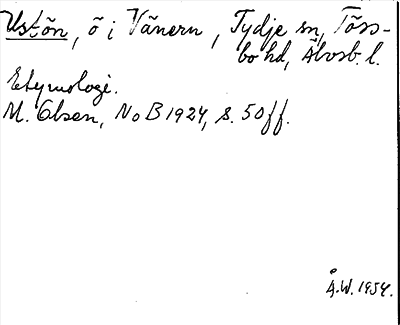 Ustön, ö i Vänern, Tydje sn, Töss-
bo hd, Älvsb. l.
Etymologi.
M. Olsen, NoB 1924, s. 50 ff.
Å.W. 1954.